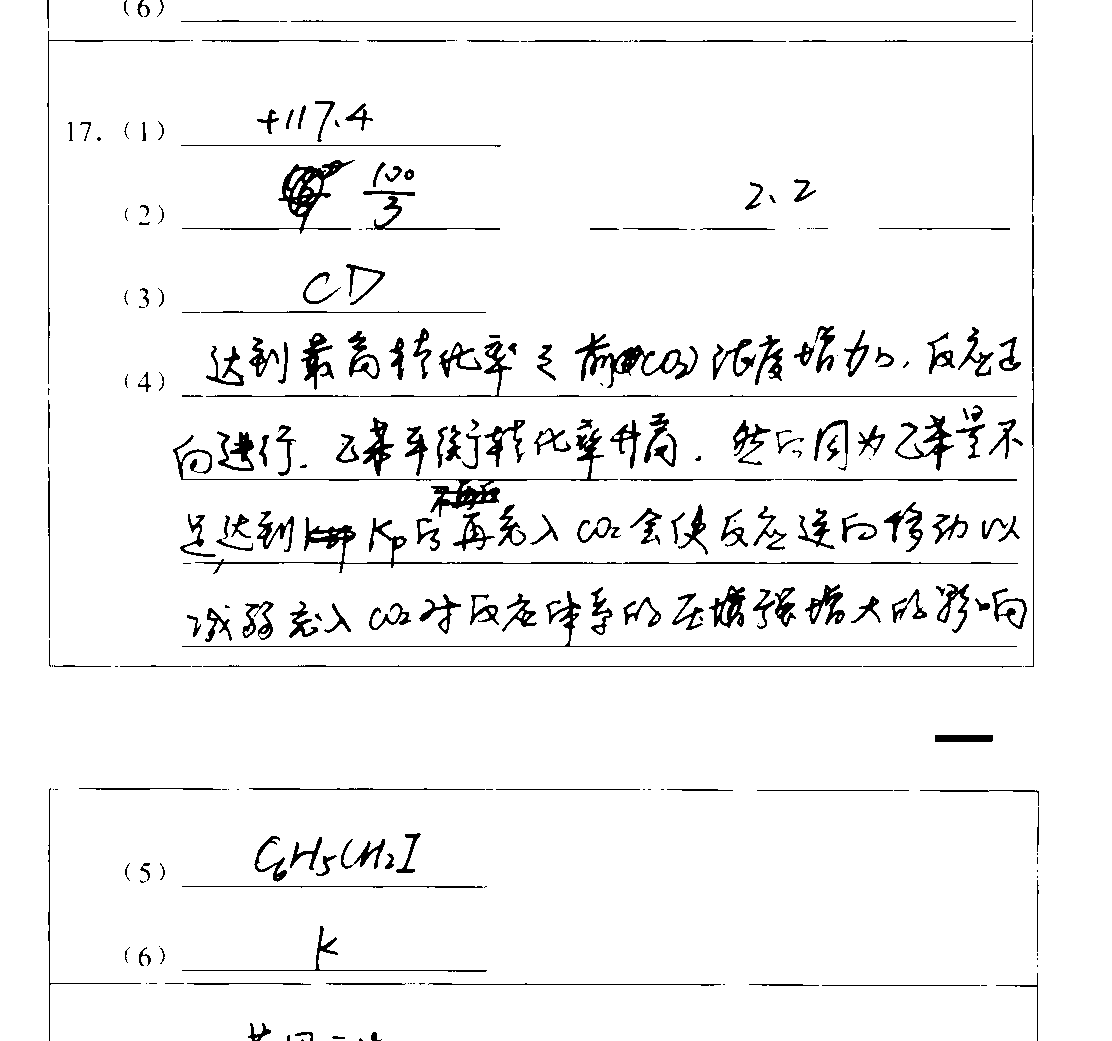 (6)
17. (1) +117.4
(2) 100/3 2、2
(3) CD
(4) 达到最高转化率之前(CO₂)浓度增加，反应正
向进行．乙苯平衡转化率升高．然后因为乙苯量不
足，达到 Kp后再充入CO₂会使反应逆向移动以
减弱充入CO₂对反应体系的压强增大的影响
(5) C₆H₅CH₂I
(6) K